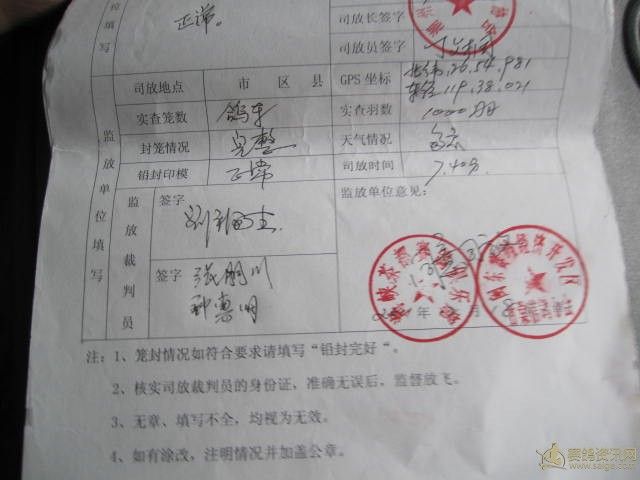 位填写
正常。
司放长签字
司放员签字
司放地点 市 区 县 GPS坐标 北纬.26.54.981
东经119.38.021
实查笼数 鸽车 实查羽数 1000羽
封笼情况 完整 天气情况 多云
铅封印模 正常 司放时间 7.40分
监放单位填写
监放裁判员
签字
监放单位意见:
签字 张朋川
年 月
注:1、笼封情况如符合要求请填写“铅封完好“。
2、核实司放裁判员的身份证,准确无误后,监督放飞。
3、无章、填写不全,均视为无效。
4、如有涂改,注明情况并加盖公章。
赛鸽资讯网
www.saige.com